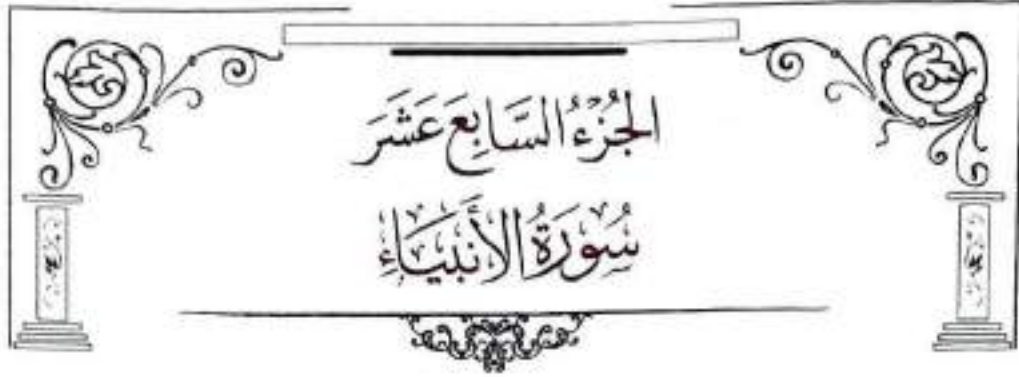 الجُزْءُ السَّابِعَ عَشَرَ
سُورَةُ الأَنْبِيَاءِ